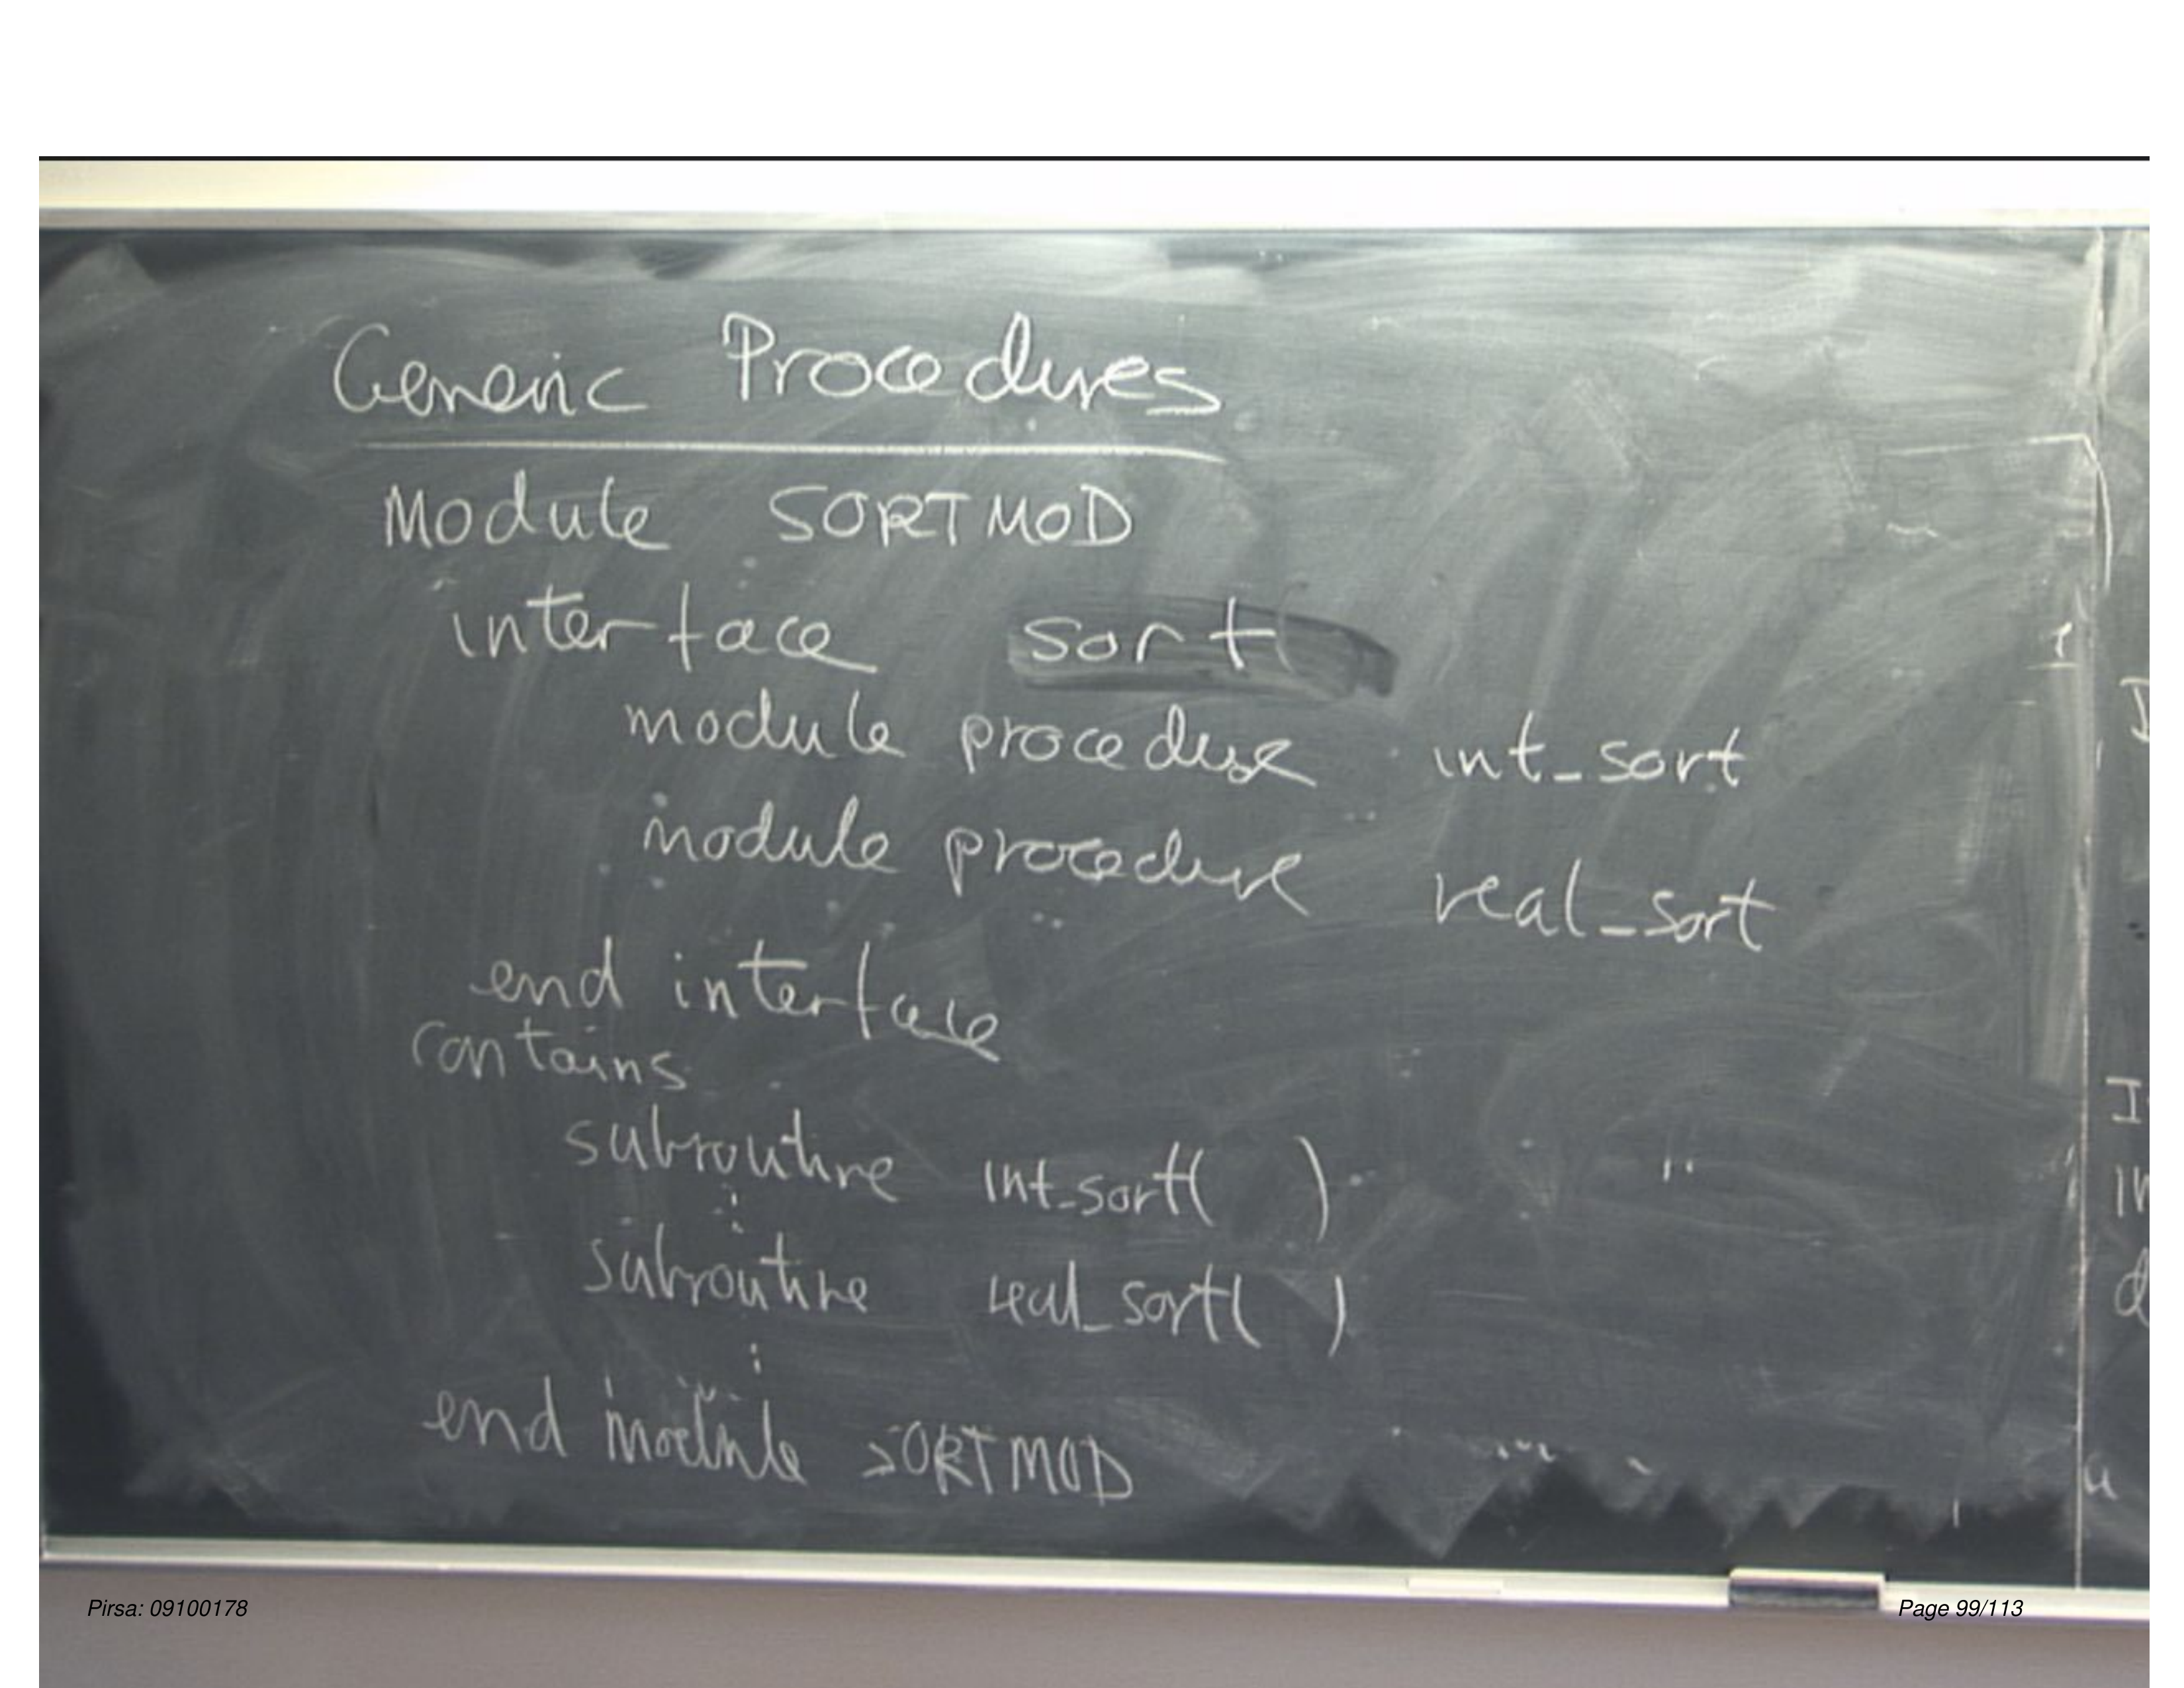 Generic Procedures
Module SORTMOD
interface sort
module procedure int_sort
module procedure real_sort
end interface
contains
subroutine int_sort( )
⋮
subroutine real_sort( )
⋮
end module SORTMOD
Pirsa: 09100178
Page 99/113